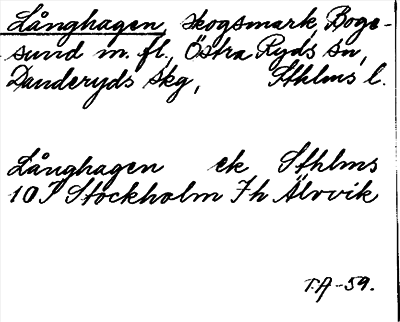 Långhagen, skogsmark, Boge-
sund m. fl., Östra Ryds sn,
Danderyds skg, Sthlms l.
Långhagen ek Sthlms
10 I Stockholm 7h Älvvik
T.A-59.